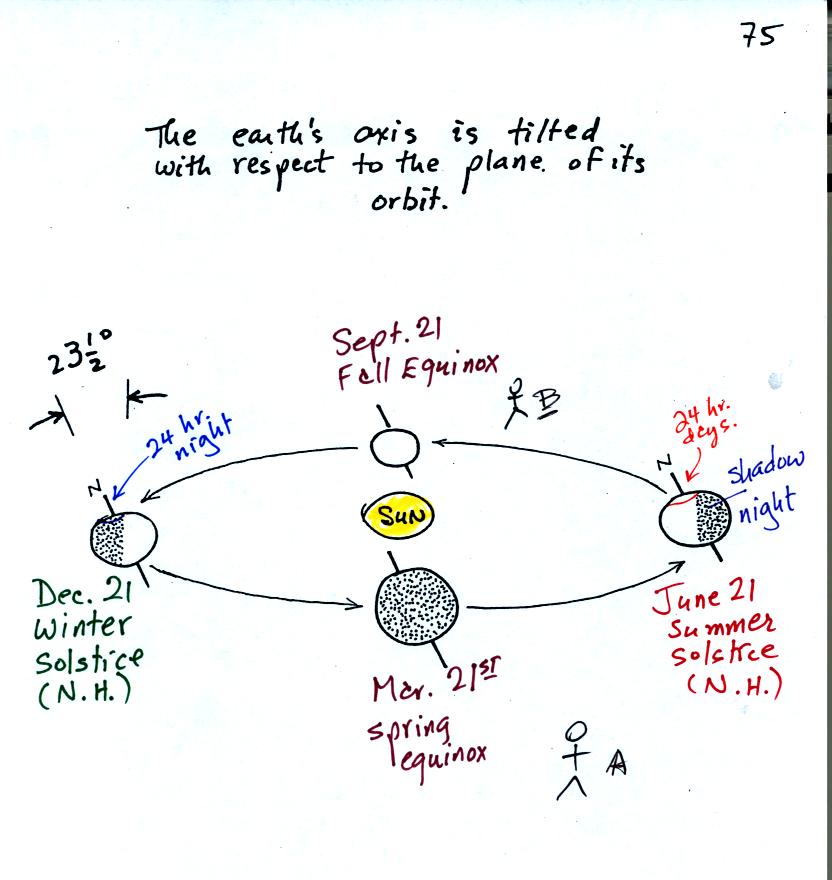 75
The earth's axis is tilted
with respect to the plane of its
orbit.
23½°
24 hr.
night
N
Sept. 21
Fall Equinox
B
24 hr.
days.
N
shadow
night
SUN
Dec. 21
Winter
Solstice
(N.H.)
Mar. 21ST
spring
equinox
June 21
Summer
solstice
(N.H.)
A